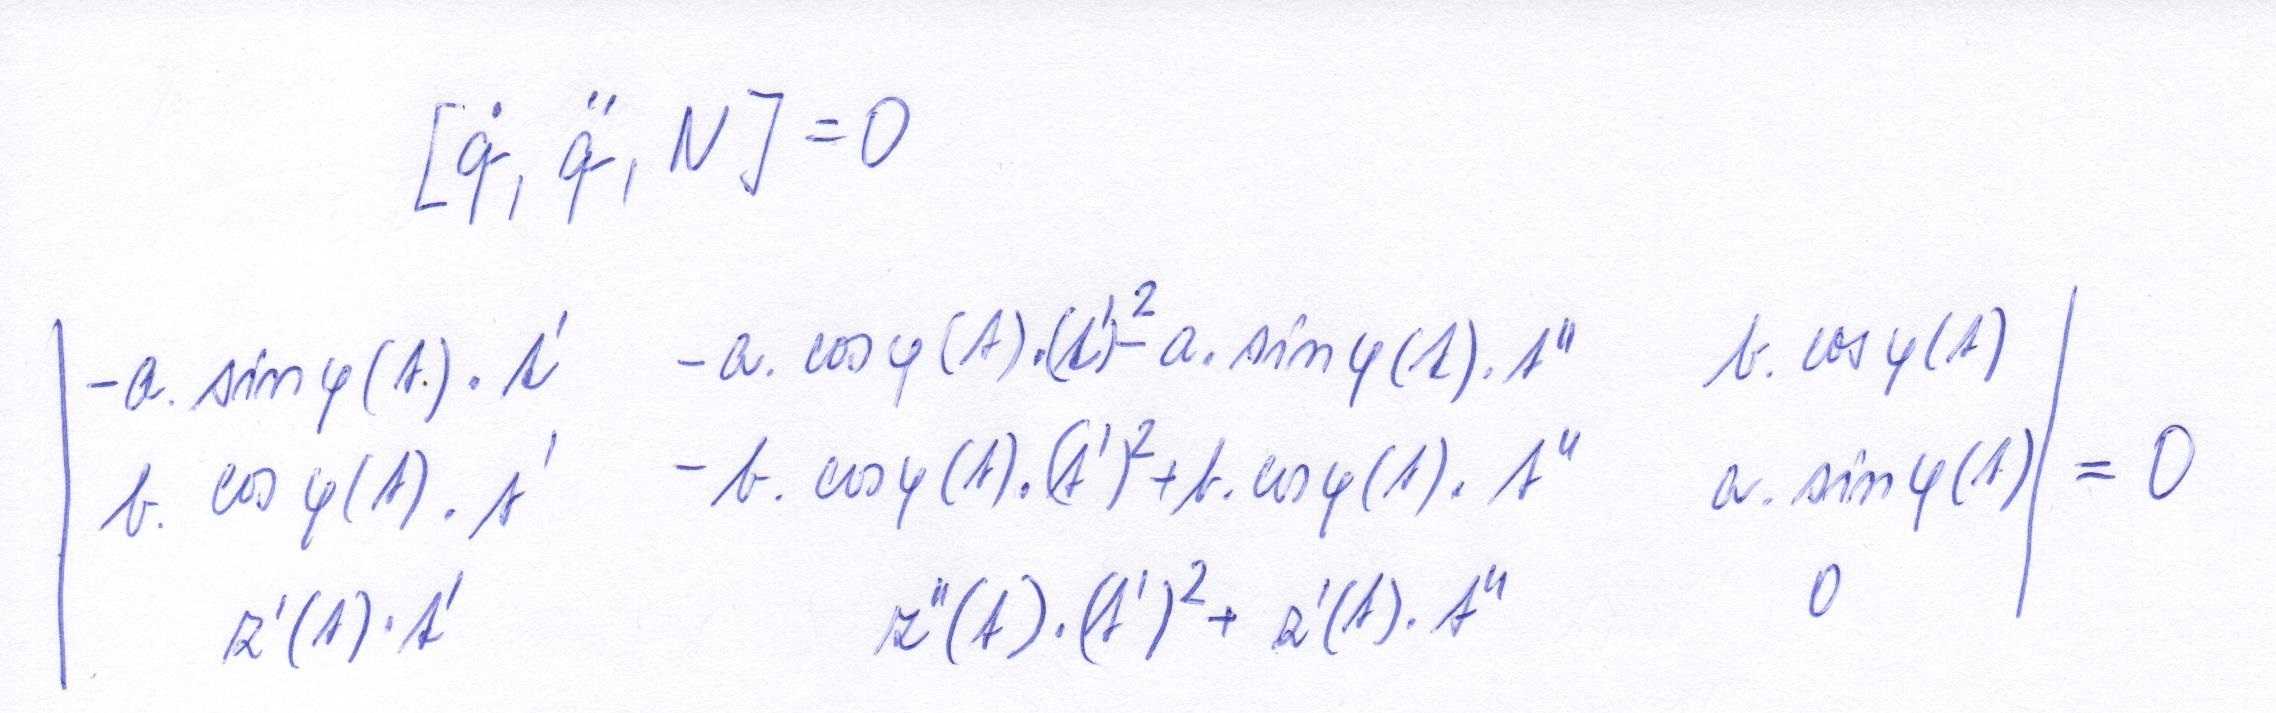 [q̇, q̈, N] = 0
| -a. sin φ(t). t'   -a. cos φ(t).(t')² - a. sin φ(t). t''   b. cos φ(t) |
| b. cos φ(t). t'   -b. cos φ(t).(t')² + b. cos φ(t). t''   a. sin φ(t) | = 0
| z'(t). t'   z''(t).(t')² + z'(t). t''   0 |